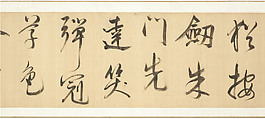 猶按
劍朱
門先
達笑
彈冠
草色